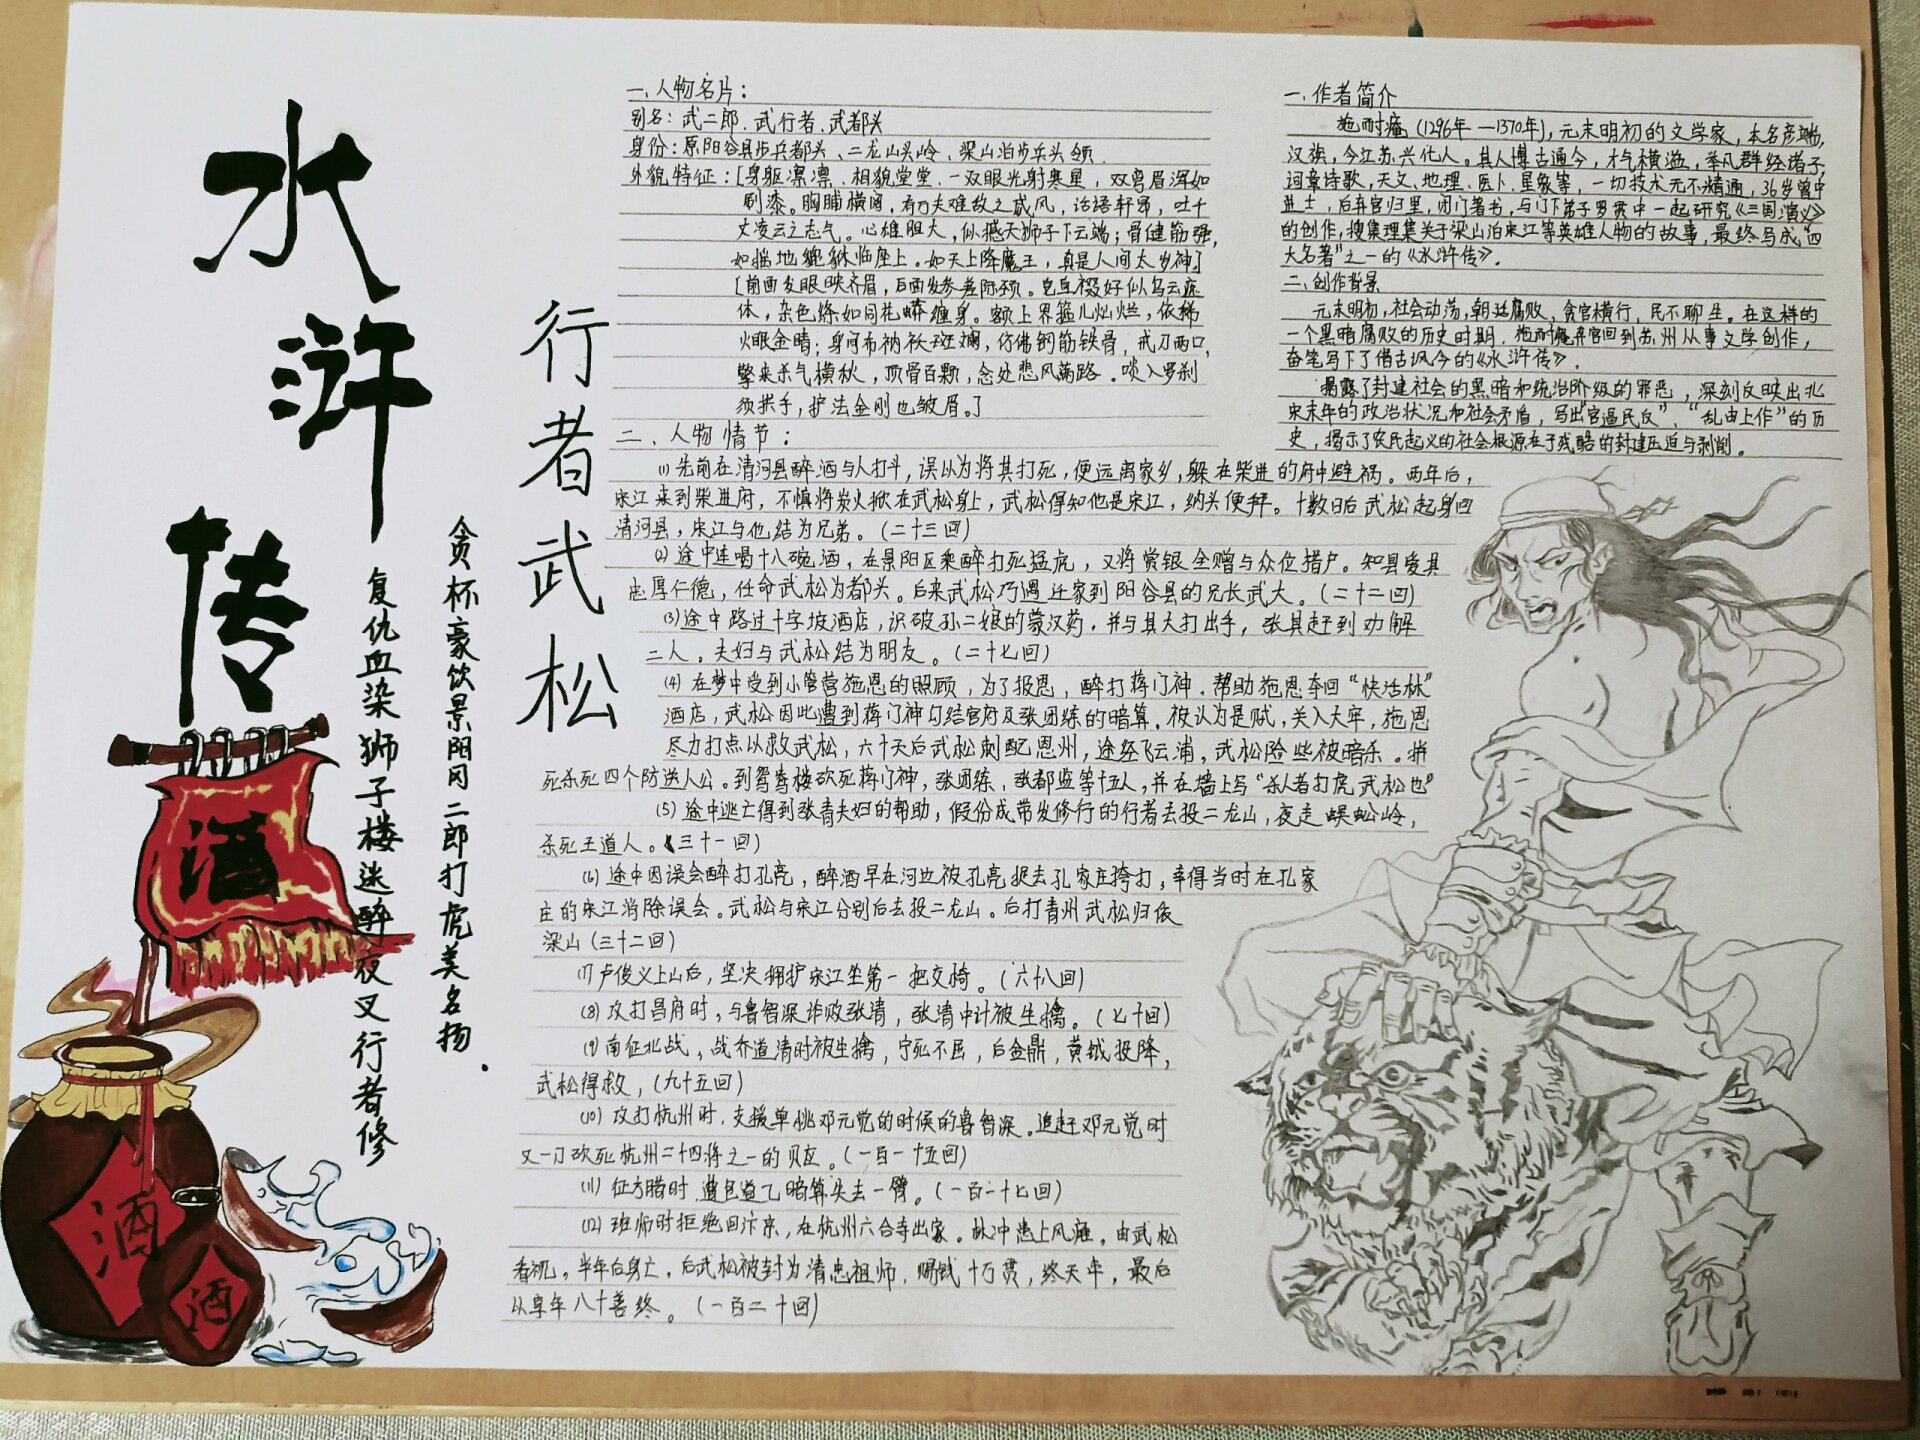 水浒传
贪杯豪饮景阳冈二郎打虎美名扬.
复仇血染狮子楼迷醉夜叉行者修
酒
酒
酒
行者武松
一、人物名片：
别名：武二郎、武行者、武都头
身份：原阳谷县步兵都头、二龙山头岭、梁山泊步兵头领.
外貌特征：[身躯凛凛、相貌堂堂、一双眼光射寒星，双弯眉浑如
刷漆。胸脯横阔，有万夫难敌之威风，话语轩昂，吐千
丈凌云之志气。心雄胆大，似撼天狮子下云端；骨健筋强，
如摇地貔貅临座上。如天上降魔王，真是人间太岁神]
[前面发眼映齐眉，后面发参差际颈。皂直裰好似乌云遮
体，杂色绦如同花蟒缠身。额上界箍儿灿烂，依稀
火眼金睛；身间布衲袄斑斓，仿佛钢筋铁骨，戒刀两口，
擎来杀气横秋，顶骨百颗，念处悲风满路．啖人罗刹
须拱手，护法金刚也皱眉。]
二、人物情节：
(1) 先前在清河县醉酒与人打斗，误以为将其打死，便远离家乡，躲在柴进的府中避祸。两年后，
宋江来到柴进府，不慎将炭火掀在武松身上，武松得知他是宋江，纳头便拜。十数日后武松起身回
清河县，宋江与他结为兄弟。(二十三回)
(2) 途中连喝十八碗酒，在景阳区乘醉打死猛虎，又将赏银全赠与众位猎户。知县爱其
忠厚仁德，任命武松为都头。后来武松巧遇迁家到阳谷县的兄长武大。(二十二回)
(3) 途中路过十字坡酒店，识破孙二娘的蒙汉药，并与其大打出手，张其赶到劝解
二人。夫妇与武松结为朋友。(二十七回)
(4) 在梦中受到小管营施恩的照顾，为了报恩，醉打蒋门神．帮助施恩夺回“快活林”
酒店，武松因此遭到蒋门神勾结官府及张团练的暗算．被认为是贼，关入大牢，施恩
尽力打点以救武松，六十天后武松刺配恩州，途经飞云浦，武松险些被暗杀。拼
死杀死四个防送人公。到鸳鸯楼砍死蒋门神，张团练，张都监等十五人，并在墙上写“杀人者打虎武松也”
(5) 途中逃亡得到张青夫妇的帮助，假份成带发修行的行者去投二龙山，夜走蜈蚣岭，
杀死王道人。(三十一回)
(6) 途中因误会醉打孔亮，醉酒早在河边被孔亮捉去孔家庄挎打，幸得当时在孔家
庄的宋江消除误会。武松与宋江分别后去投二龙山。后打青州武松归依
梁山(三十二回)
(7) 卢俊义上山后，坚决拥护宋江坐第一把交椅。(六十八回)
(8) 攻打昌府时，与鲁智深诈败张清，张清中计被生擒。(七十回)
(9) 南征北战，战乔道清时被生擒，宁死不屈，后金鼎，黄钺投降，
武松得救，(九十五回)
(10) 攻打杭州时，支援单挑邓元觉的时候的鲁智深。追赶邓元觉时
又一刀砍死杭州二十四将之一的贝应。(一百一十五回)
(11) 征方腊时．遭包道乙暗算失去一臂。(一百一十七回)
(12) 班师时拒绝回汴京，在杭州六合寺出家。林冲患上风瘫，由武松
看视，半年后身亡．后武松被封为清忠祖师．赐钱十万贯，终天年，最后
以享年八十善终。(一百二十回)
一、作者简介
施耐庵(1296年—1370年)，元末明初的文学家，本名彦端，
汉族，今江苏兴化人。其人博古通今，才气横溢，举凡群经诸子，
词章诗歌，天文、地理、医卜、星象等，一切技术无不精通，36岁曾中
进士，后弃官归里，闭门著书，与门下弟子罗贯中一起研究《三国演义》
的创作，搜集理集关于梁山泊宋江等英雄人物的故事，最终写成“四
大名著”之一的《水浒传》．
二、创作背景
元末明初，社会动荡，朝廷腐败，贪官横行，民不聊生。在这样的
一个黑暗腐败的历史时期．施耐庵弃官回到苏州从事文学创作，
奋笔写下了借古讽今的《水浒传》．
揭露了封建社会的黑暗和统治阶级的罪恶，深刻反映出北
宋末年的政治状况和社会矛盾，写出“官逼民反”、“乱由上作”的历
史，揭示了农民起义的社会根源在于残酷的封建压迫与剥削。